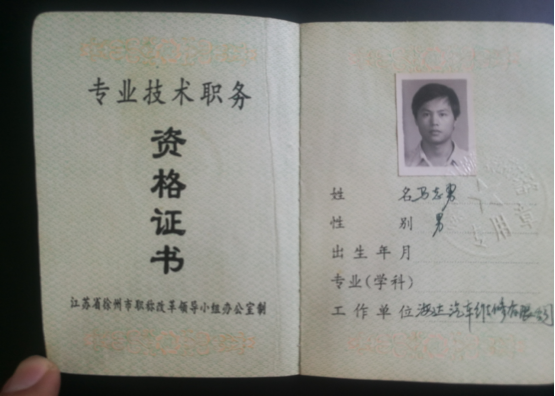 专业技术职务
资格证书
江苏省徐州市职称改革领导小组办公室制
姓 名 马志男
性 别 男
出生年月
专业(学科)
工作单位 海达汽车维修有限公司
专用章